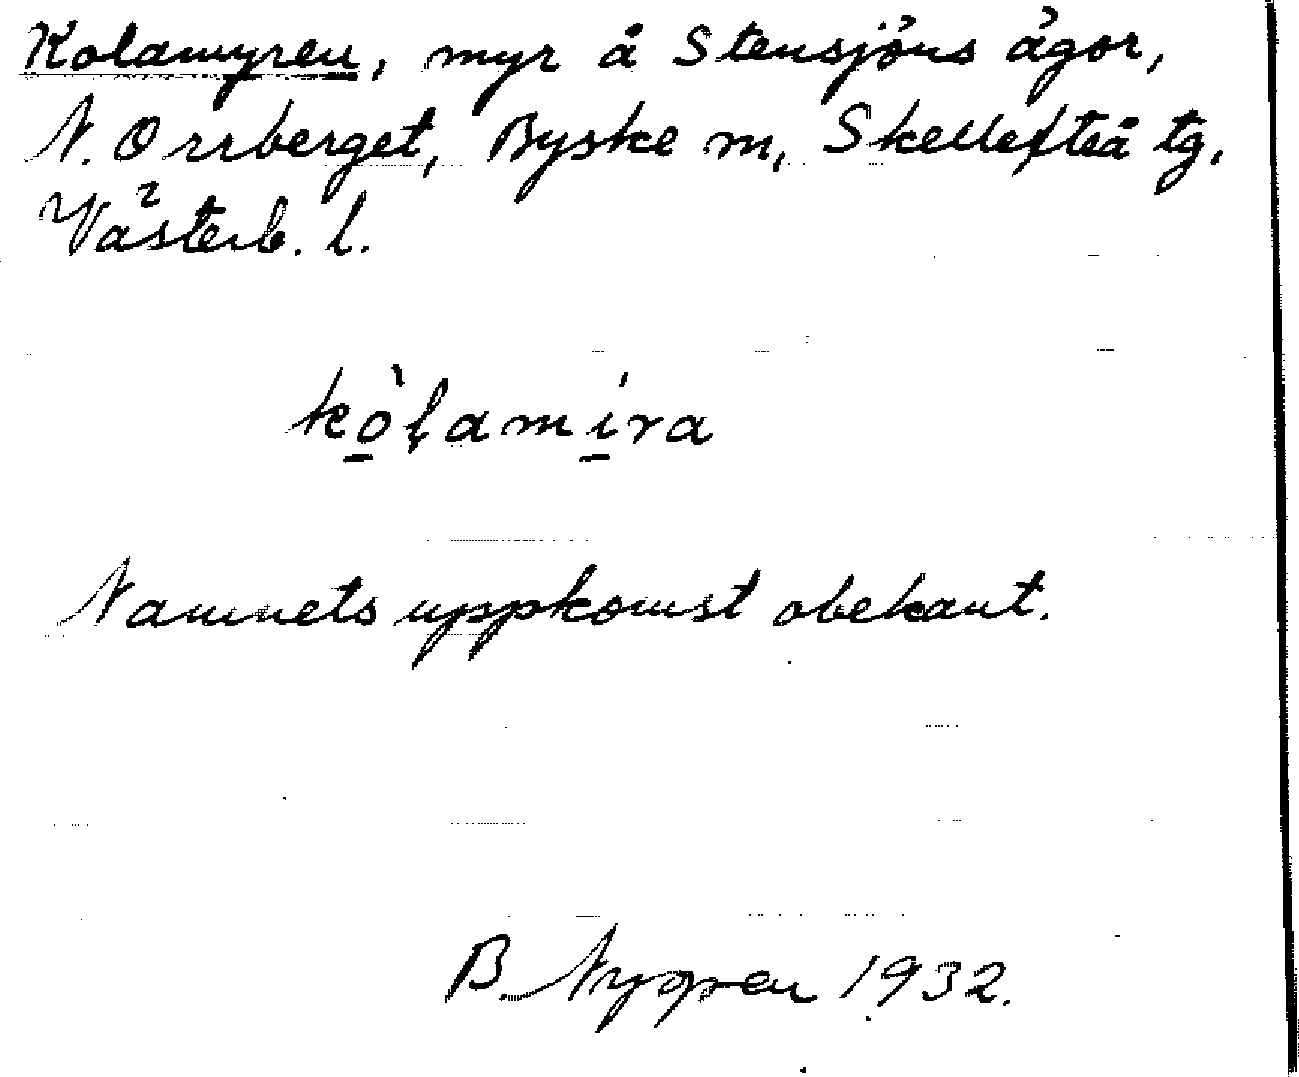 Kolamyren, myr å Stensjöns ägor,
N. Orrberget, Byske sn, Skellefteå tg.
Västerb. l.
kò̱l̩amí̱ra
Namnets uppkomst obekant.
B. Nygren 1932.